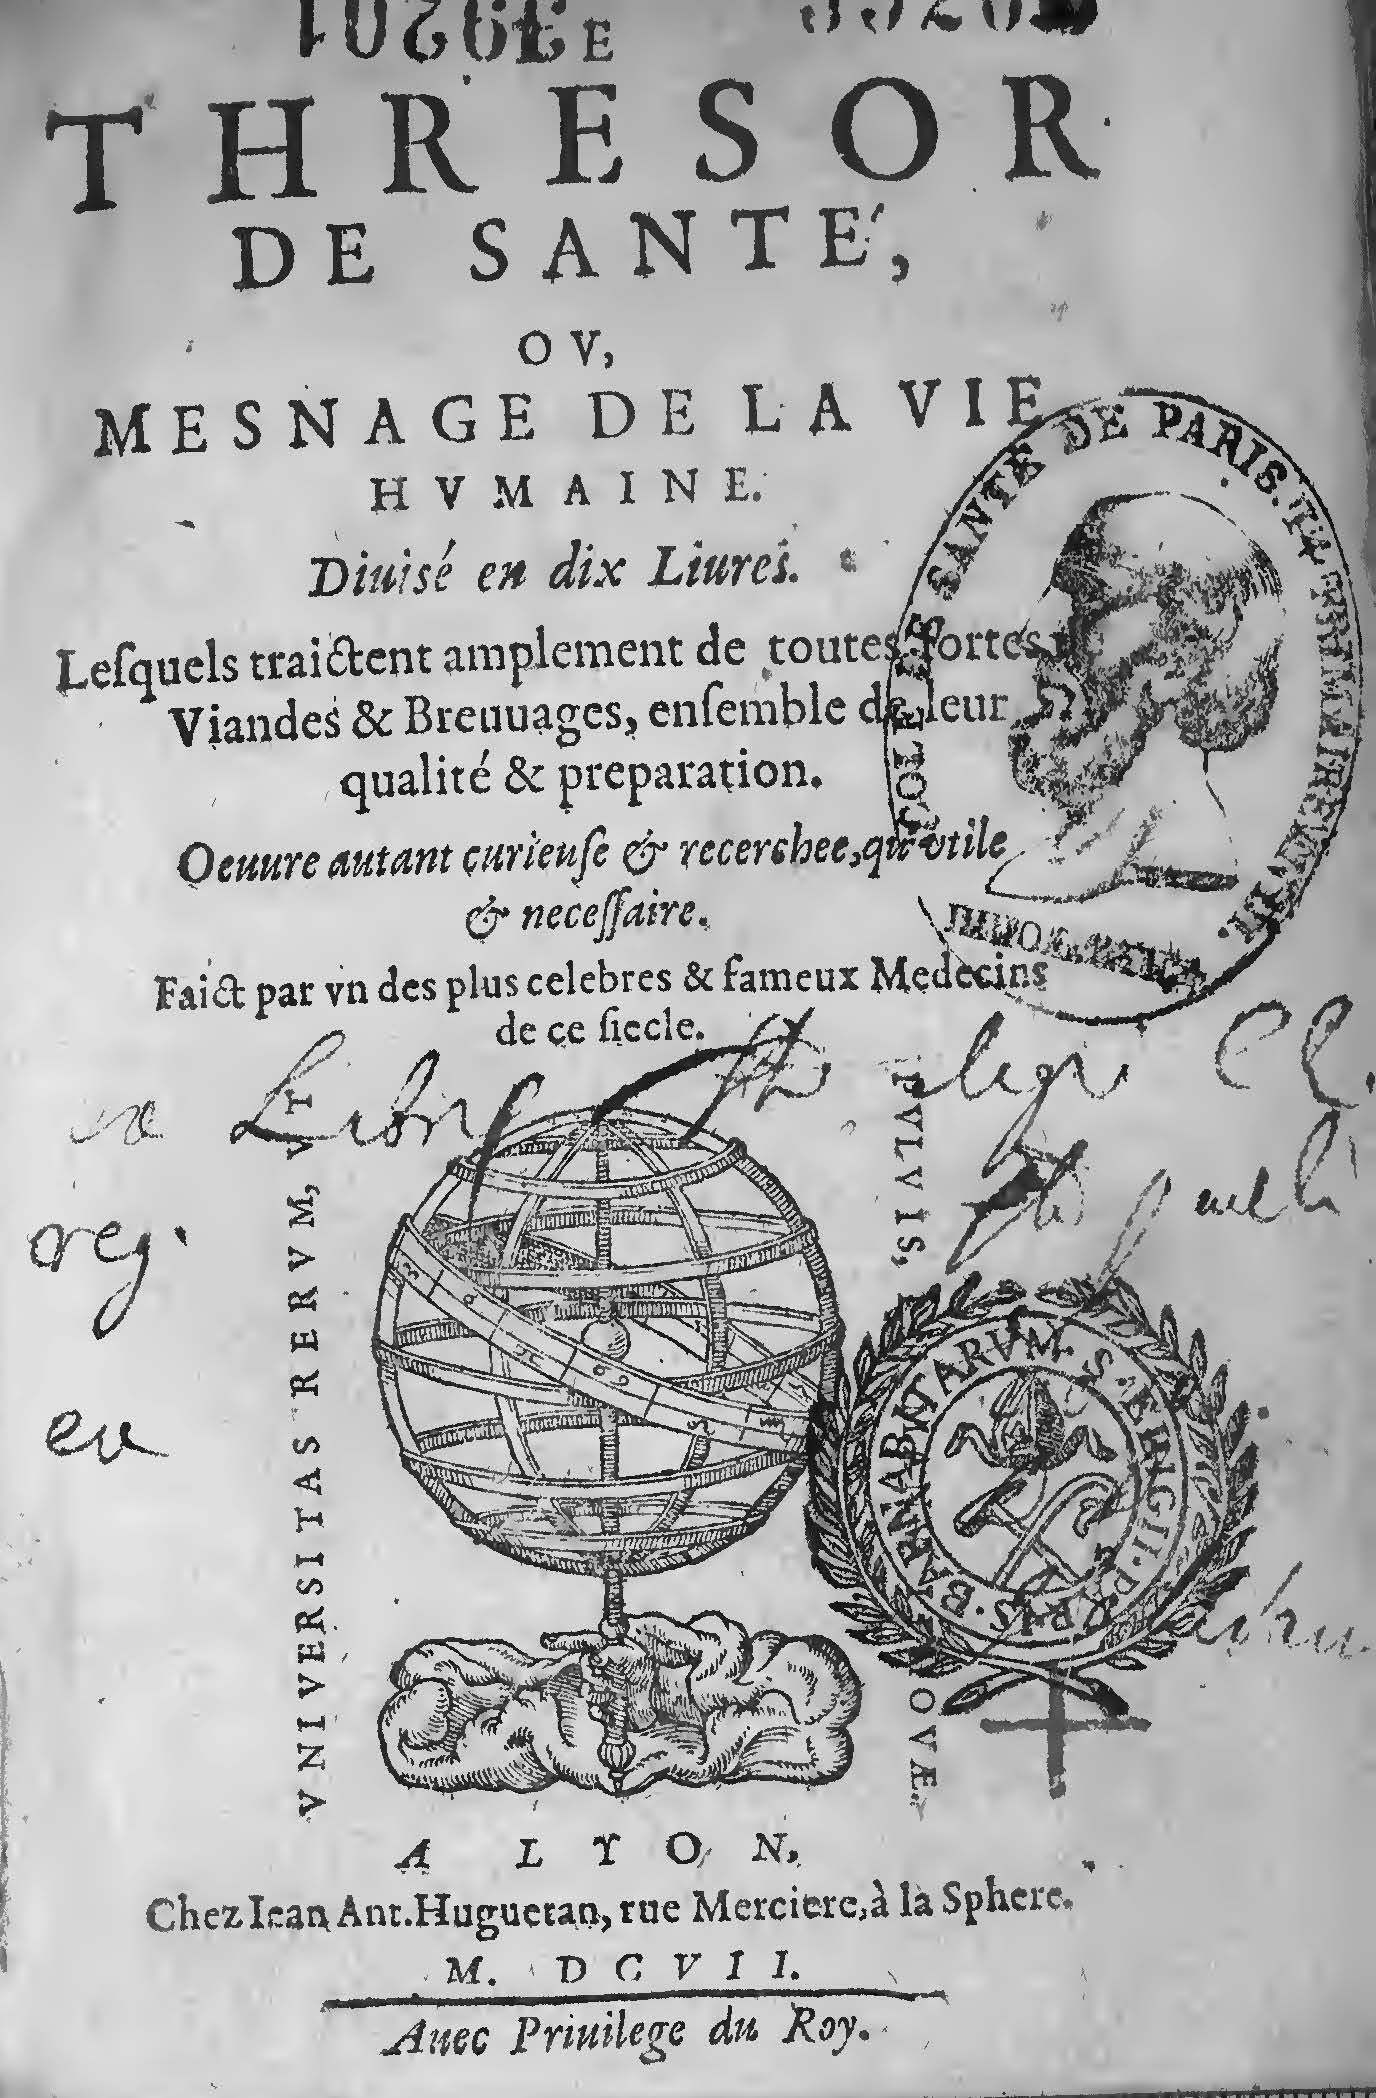 39201
LE
THRESOR
DE SANTE',
OV,
MESNAGE DE LA VIE
HVMAINE.
Diuisé en dix Liures.
Leſquels traictent amplement de toutes ſortes de
Viandes & Breuuages, enſemble de leur
qualité & preparation.
Oeuure autant curieuſe & recerchee, qu'vtile
& neceſſaire.
Faict par vn des plus celebres & fameux Medecins
de ce ſiecle.
SANTE DE PARIS.
VNIVERSITAS RERVM, VT
PVLVIS,
IOVÆ.
BARNABITARVM. S. ELIGII. PARIS.
reg.
A LYON,
Chez Iean Ant. Huguetan, rue Merciere, à la Sphere.
M. DCVII.
Auec Priuilege du Roy.